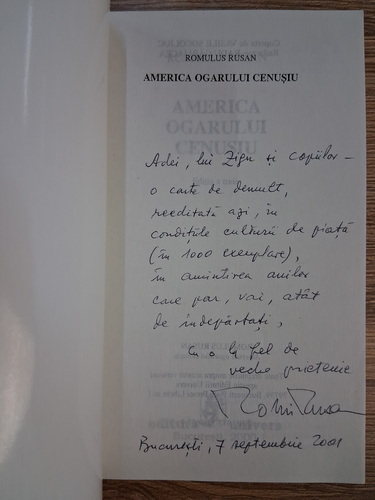 ROMULUS RUSAN
AMERICA OGARULUI CENUȘIU
AMERICA
OGARULUI
CENUȘIU
Adei, lui Zigu și copiilor –
o carte de demult,
reeditată azi, în
condițiile culturii de piață
(în 1000 exemplare),
în amintirea anilor
care par, vai, atât
de îndepărtați,
cu o la fel de
veche prietenie
Romulus Rusan
București, 7 septembrie 2001